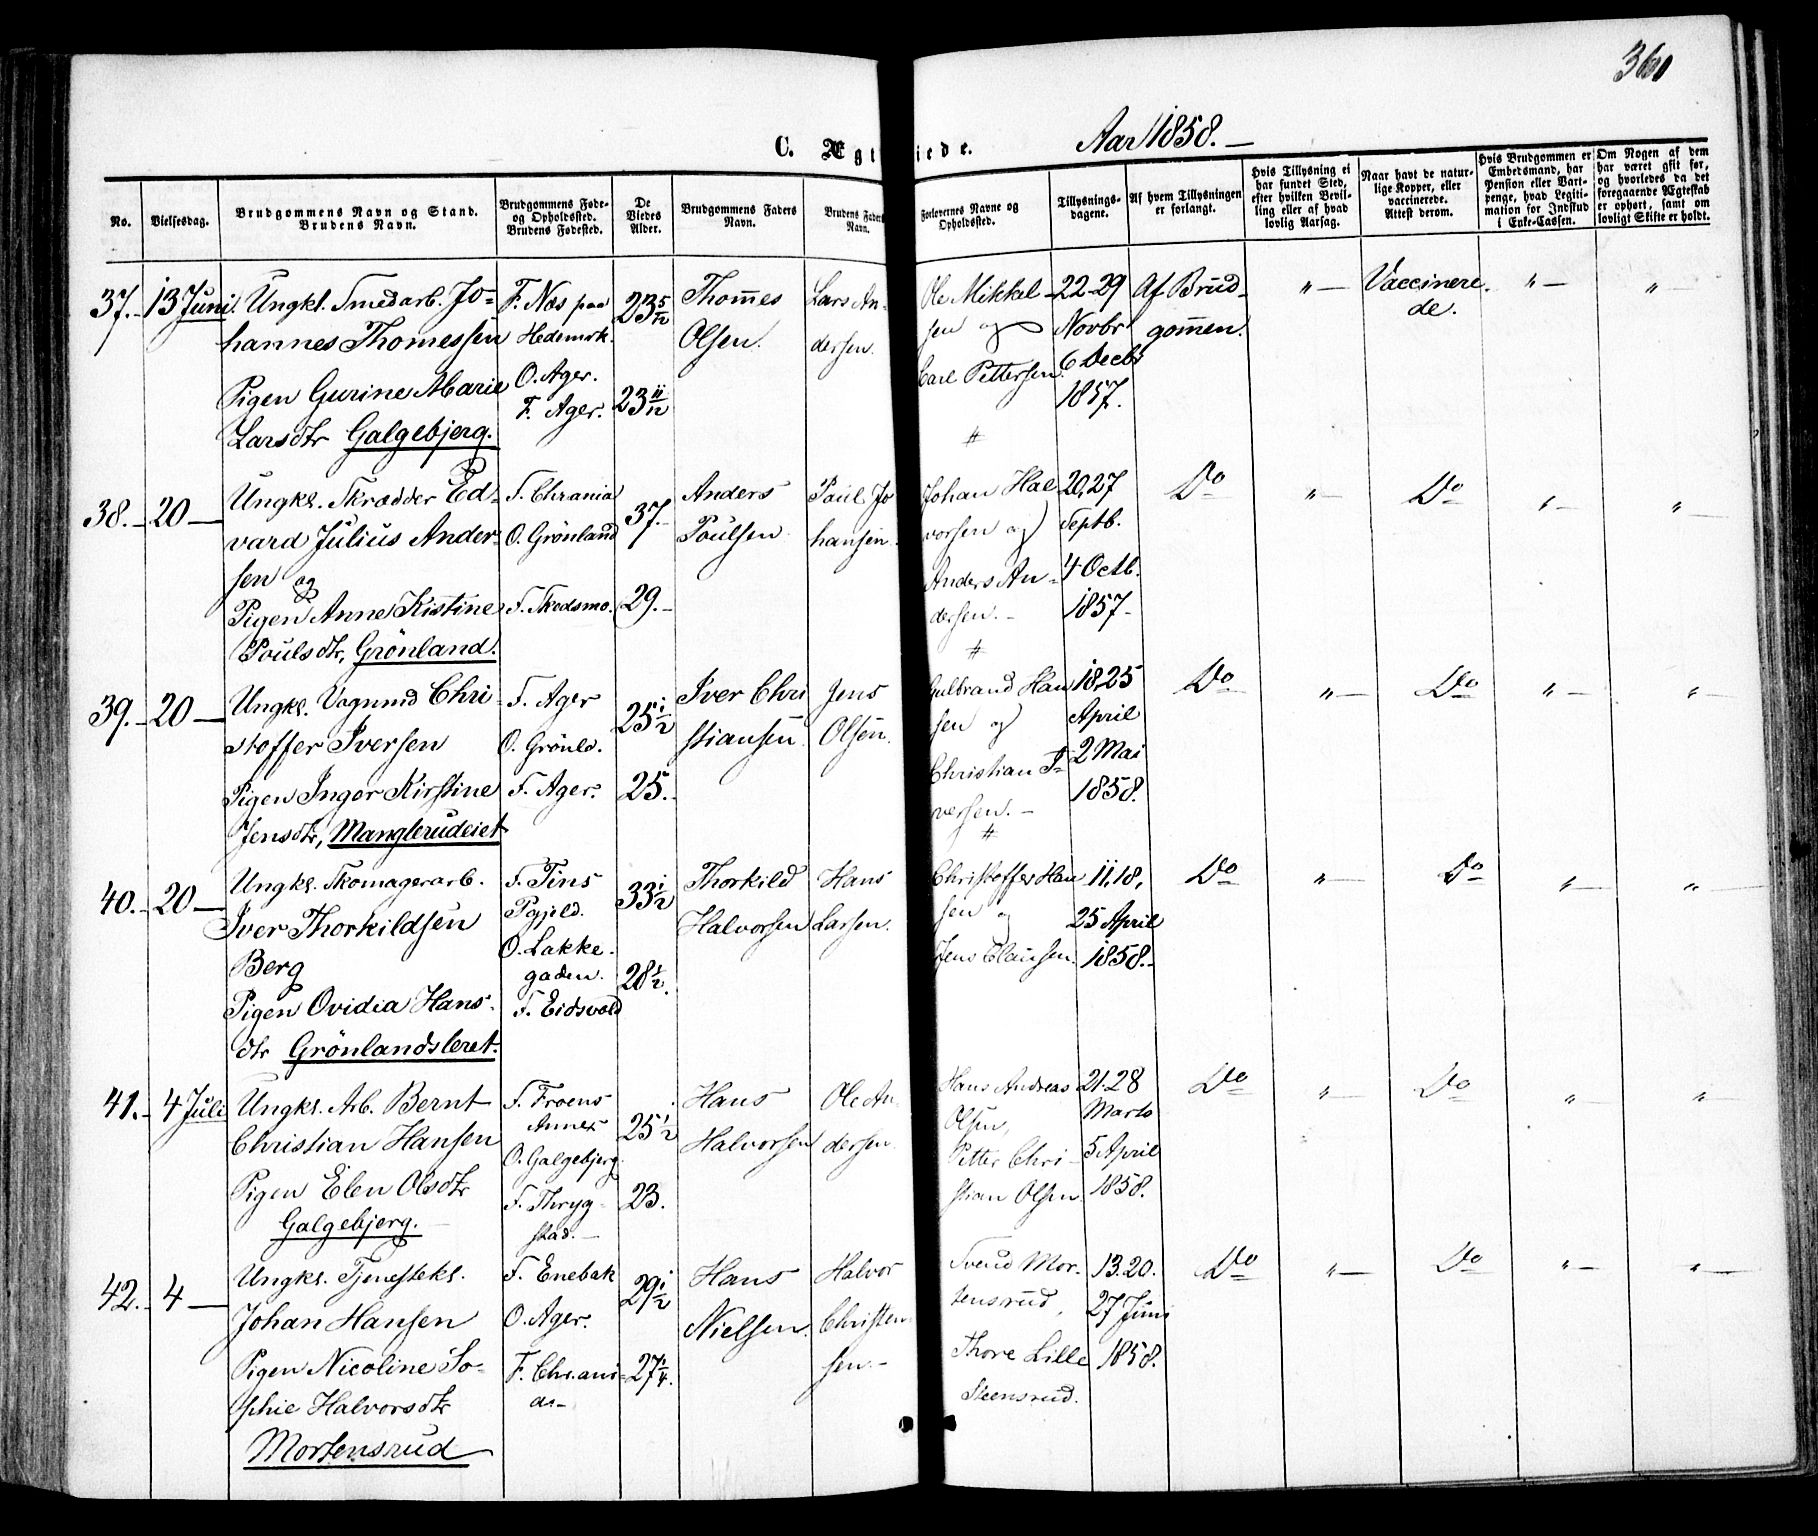 360
C. Ægt iede. Aar 1858. –
No.
Vielsesdag.
Brudgommens Navn og Stand.
Brudens Navn.
Brudgommens Føde-
og Opholdssted.
Brudens Fødested.
De
Viedes
Alder.
Brudgommens Faders
Navn.
Brudens Faders
Navn.
Forlovernes Navne og
Opholdssted.
Tillysnings-
dagene.
Af hvem Tillysningen
er forlangt.
Hvis Tillysning ei
har fundet Sted,
efter hvilken Bevil-
ling eller af hvad
lovlig Aarsag.
Naar havt de natur-
lige Kopper, eller
vaccinerede.
Attest derom.
Hvis Brudgommen er
Embedsmand, har
Pension eller Vart-
penge, hvad Legiti-
mation for Indskud
i Enke-Cassen.
Om Nogen af dem
har været gift før,
og hvorledes da det
foregaaende Ægteskab
er ophørt, samt om
lovligt Skifte er holdt.
37. – 13 Juni.
Ungkl. Smedarb. Jo-
hannes Thomessen
Pigen Gurine Marie
Larsdtr Galgebjerg.
F. Næs paa
Hedemrk.
O. Ager.
F. Ager.
23 5/12
23 11/12
Thomes
Olsen.
Lars An-
dersen.
Ole Mikkel-
sen og
Carl Pettersen.
22-29
Novbr
6 Decbr
1857.
Af Brud-
gommen.
" –
Vaccinere-
de.
" –
" –
38. – 20 –
Ungkl. Skrædder Ed-
vard Julius Ander-
sen og
Pigen Anne Kistine
Poulsdtr, Grönland.
F. Chrania
O. Grönland
F. Skedsmo.
37. –
29. –
Anders
Poulsen
Poul Jo
hansen.
Johan Hal
vorsen og
Anders An-
dersen. –
20, 27
Septb.
4 Octb.
1857 –
Do
" –
Do
" –
" –
39. – 20 –
Ungkl. Vognmd Chri-
stoffer Iversen
Pigen Inger Kirstine
Jensdtr, Manglerudeiet
F. Ager
O. Grönld.
F. Ager.
25 1/2
25. –
Iver Chri
stiansen.
Jens
Olsen.
Gulbrand Han
sen og
Christian I-
versen. –
18, 25
April
2 Mai
1858.
Do
" –
Do
" –
" –
40. – 20 –
Ungkl. Skomagerarb.
Iver Thorkildsen
Berg
Pigen Ovidia Hans-
dtr Grönlandsleret.
F. Tins
Pgjeld.
O. Lakke-
gaden.
F. Eidsvold
33 1/2
28 1/2.
Thorkild
Halvorsen
Hans
Larsen.
Christoffer Han
sen og
Jens Clausen.
11, 18,
25 April
1858. –
Do
" –
Do
" –
" –
41. – 4 Juli
Ungkl. Arb. Bernt
Christian Hansen
Pigen Elen Olsdtr
Galgebjerg. –
F. Froens
Annex
O. Galgebjerg.
F. Thryg-
stad. –
25 1/2
23.
Hans
Halvorsen
Ole An-
dersen.
Hans Andreas
Olsen,
Petter Chri-
stian Olsen.
21. 28
Marts
5 April
1858.
Do
" –
Do
" –
"
42. – 4 –
Ungkl. Tjenestekl.
Johan Hansen
Pigen Nicoline So-
phie Halvorsdtr
Mortensrud
F. Enebak
O. Ager.
F. Chrani-
a. –
29 1/2
27 1/4.
Hans
Nielsen.
Halvor
Christen-
sen. –
Svend Mor-
tensrud,
Thore Lille
Steensrud.
13. 20.
27 Juni
1858.
Do
" –
Do
" –
" –